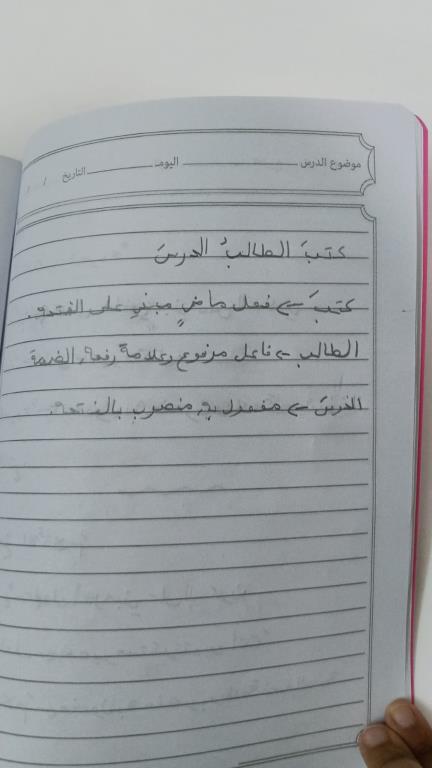 موضوع الدرس اليوم التاريخ
كتبَ الطالبُ الدرسَ
كتبَ => فعل ماضٍ مبني على الفتحه.
الطالب => فاعل مرفوع وعلامة رفعه الضمة
الدرسَ => مفعول به منصوب بالفتحه.